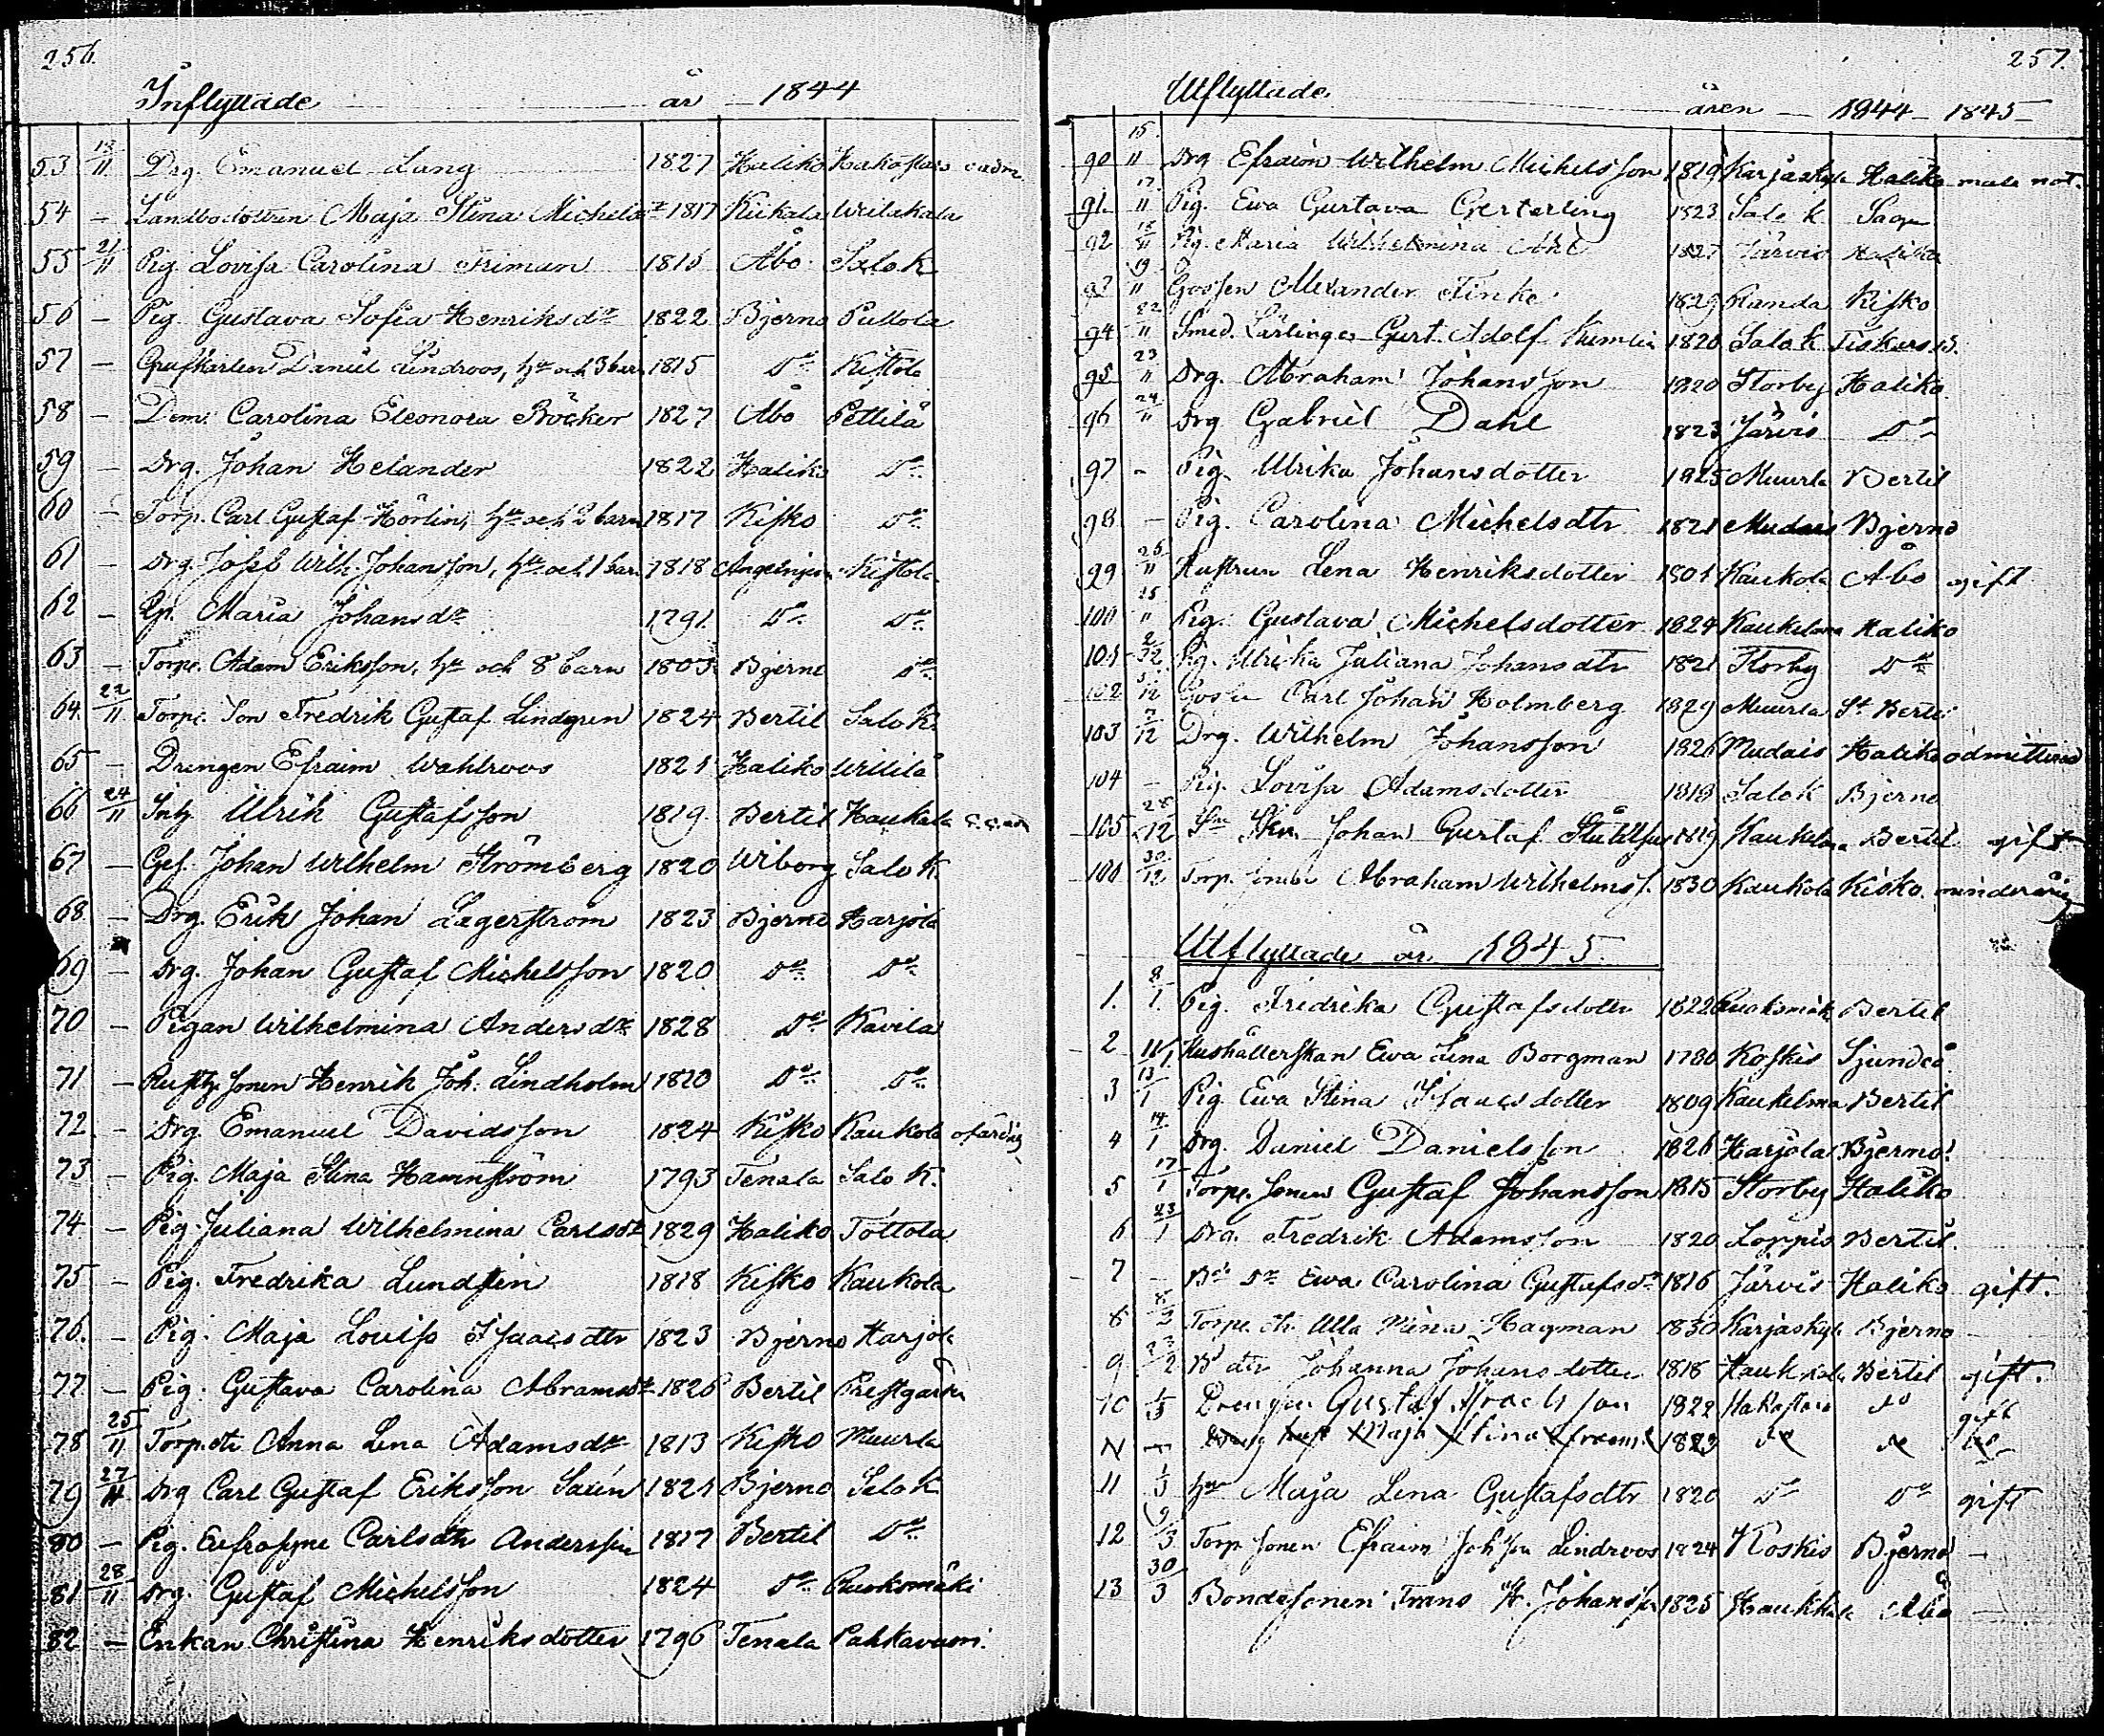 256.
Inflyttade år 1844
53 13/11 Drg. Emanuel Lang 1827 Haliko Hakostaro
54 — Landbodottren Maja Stina Michelsdr 1817 Kiikala
55 21/11 Pig. Lovisa Carolina Friman 1815 Åbo Salo K
56 — Pig. Gustava Sofia Henriksdr 1822 Bjerno Puttola
57 — Daniel Lindroos, hu och 3 barn 1815 Do Kistola
58 — Dem. Carolina Eleonora Böcker 1827 Åbo Pettilä
59 — Drg. Johan Helander 1822 Haliko Do
60 — Torp. Carl Gustaf Hörlin, hu och 2 barn 1817 Kisko Do
61 — Drg. Josef Wilh. Johansson, hu och 1 barn 1818 Angelniemi Kistola
62 — Maria Johansdr 1791 Do Do
63 — Torp. Adam Eriksson, hu och 8 barn 1803 Bjerno Do
64. 22/11 Torp. Son Fredrik Gustaf Lindgren 1824 Bertil Salo K.
65 — Drengen Efraim Wahlroos 1821 Haliko Willilä
66 24/11 Inh. Ulrik Gustafsson 1819 Bertil Haukala
67 — Ges. Johan Wilhelm Strömberg 1820 Wiborg Salo K
68 — Drg. Erik Johan Lagerström 1823 Bjerno Harjola
69 — Drg. Johan Gustaf Michelsson 1820 Do Do
70 — Pigan Wilhelmina Andersdr 1828 Do Kavila
71 — Rusth. sonen Henrik Joh. Lindholm 1820 Do Do
72 — Drg. Emanuel Davidsson 1824 Kisko Kaukola ofärdig
73 — Pig. Maja Stina Hamnström 1793 Tenala Salo K.
74 — Pig. Juliana Wilhelmina Carlsdr 1829 Haliko Tottola
75 — Pig. Fredrika Lundsten 1818 Kisko Kaukola
76. — Pig. Maja Lovisa Isaacsdtr 1823 Bjerno Harjola
77 — Pig. Gustava Carolina Abramsdr 1826 Bertil Prestgården
78 25/11 Torp.dtr Anna Lena Adamsdr 1813 Kisko Muurla
79 27/11 Drg Carl Gustaf Eriksson Salén 1821 Bjerno Salo K
80 — Pig. Eufrosyne Carlsdtr Andersin 1817 Bertil Do
81 28/11 Drg. Gustaf Michelsson 1824 Do Ruoksmäki
82 — Enkan Christina Henriksdotter 1796 Tenala Pahkavuori
257.
Utflyttade åren — 1844 — 1845 —
90 15/11 Drg Efraim Wilhelm Michelsson 1819 Karjaskylä Haliko male not.
91. 17/11 Pig. Ewa Gustava Gesterling 1823 Salo K. Sagu
92 18/11 Pig. Maria Wilhelmina 1827 Järvis Haliko
93 19/11 Gossen Alexander Finke 1829 Kisko
94 22/11 Smed. Lärlingen Gust. Adolf Kumlin 1820 Salo K Fiskars
95 23/11 Drg. Abraham Johansson 1820 Storby Haliko
96 24/11 Drg Gabriel Dahl 1823 Järvis Do
97 — Pig. Ulrika Johansdotter 1825 Muurla Bertil
98 — Pig. Carolina Michelsdtr 1821 Mudais Bjerno
99 25/11 Hustrun Lena Henriksdotter 1801 Kaukola Åbo gift
100 25/11 Pig. Gustava Michelsdotter 1824 Kaukelma Haliko
101 2/12 Pig. Ulrika Juliana Johansdtr 1821 Storby Do
102 5/12 Gossen Carl Johan Holmberg 1829 Muurla St Bertil
103 7/12 Drg. Wilhelm Johansson 1826 Mudais Haliko admitterad
104 — Pig. Lovisa Adamsdotter 1818 Salo K Bjerno
105 28/12 Johan Gustaf 1819 Kaukelma Bertil gift
106 30/12 Torp. sonen Abraham Wilhelmss. 1830 Kaukola Kisko. minderårig
Utflyttade år 1845.
1. 8/1 Pig. Fredrika Gustafsdotter 1822 Ruoksmäki Bertil
2 11/1 Hushållerskan Ewa Lena Borgman 1780 Koskis Sjundeå
3 13/1 Pig. Ewa Stina Isaacsdotter 1809 Kaukelma Bertil
4 14/1 Drg. Daniel Danielsson 1826 Harjola Bjerno.
5 17/1 Torp. sonen Gustaf Johansson 1815 Storby Haliko
6 23/1 Drg. Fredrik Adamsson 1820 Loppis Bertil.
7 — Bo Dr Ewa Carolina Gustafsdr 1816 Järvis Haliko gift.
8 8/2 Torp. dtr. Ulla Mina Hagman 1830 Karjaskylä Bjerno —
9 23/2 Bd dtr Johanna Johansdotter 1818 Bertil gift.
10 1/3 Drengen Gustaf Israelsson 1822 Hakostaro Do gift
Maja Stina 1823 Do Do Do
11 1/3 hu Maja Lena Gustafsdtr 1820 Do Do gift
12 9/3 Torp. sonen Efraim Johsson Lindroos 1824 Koskis Bjerno —
13 30/3 Bondesonen Frans H. Johansson 1825 Åbo —